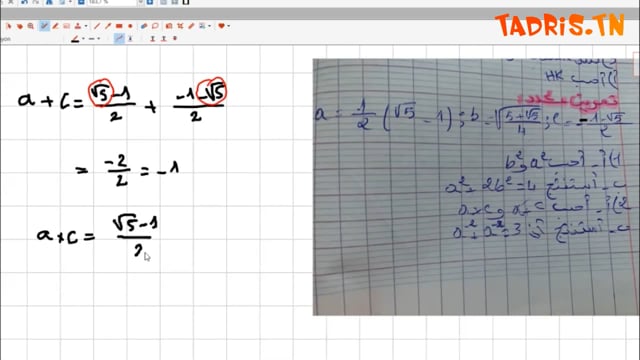 TADRIS.TN
a + c = √5 - 1 / 2 + -1 - √5 / 2
= -2 / 2 = -1
a × c = √5 - 1 / 2
HK
a = 1/2 (√5 - 1) ; b = √(5+√5 / 4) ; c = -1-√5 / 2
1) أ- أحسب a² و b²
ب- أستنتج a² + 2b² = 4
2) أ- أحسب a+c و a×c
ب- أستنتج أن a² + a⁻² = 3